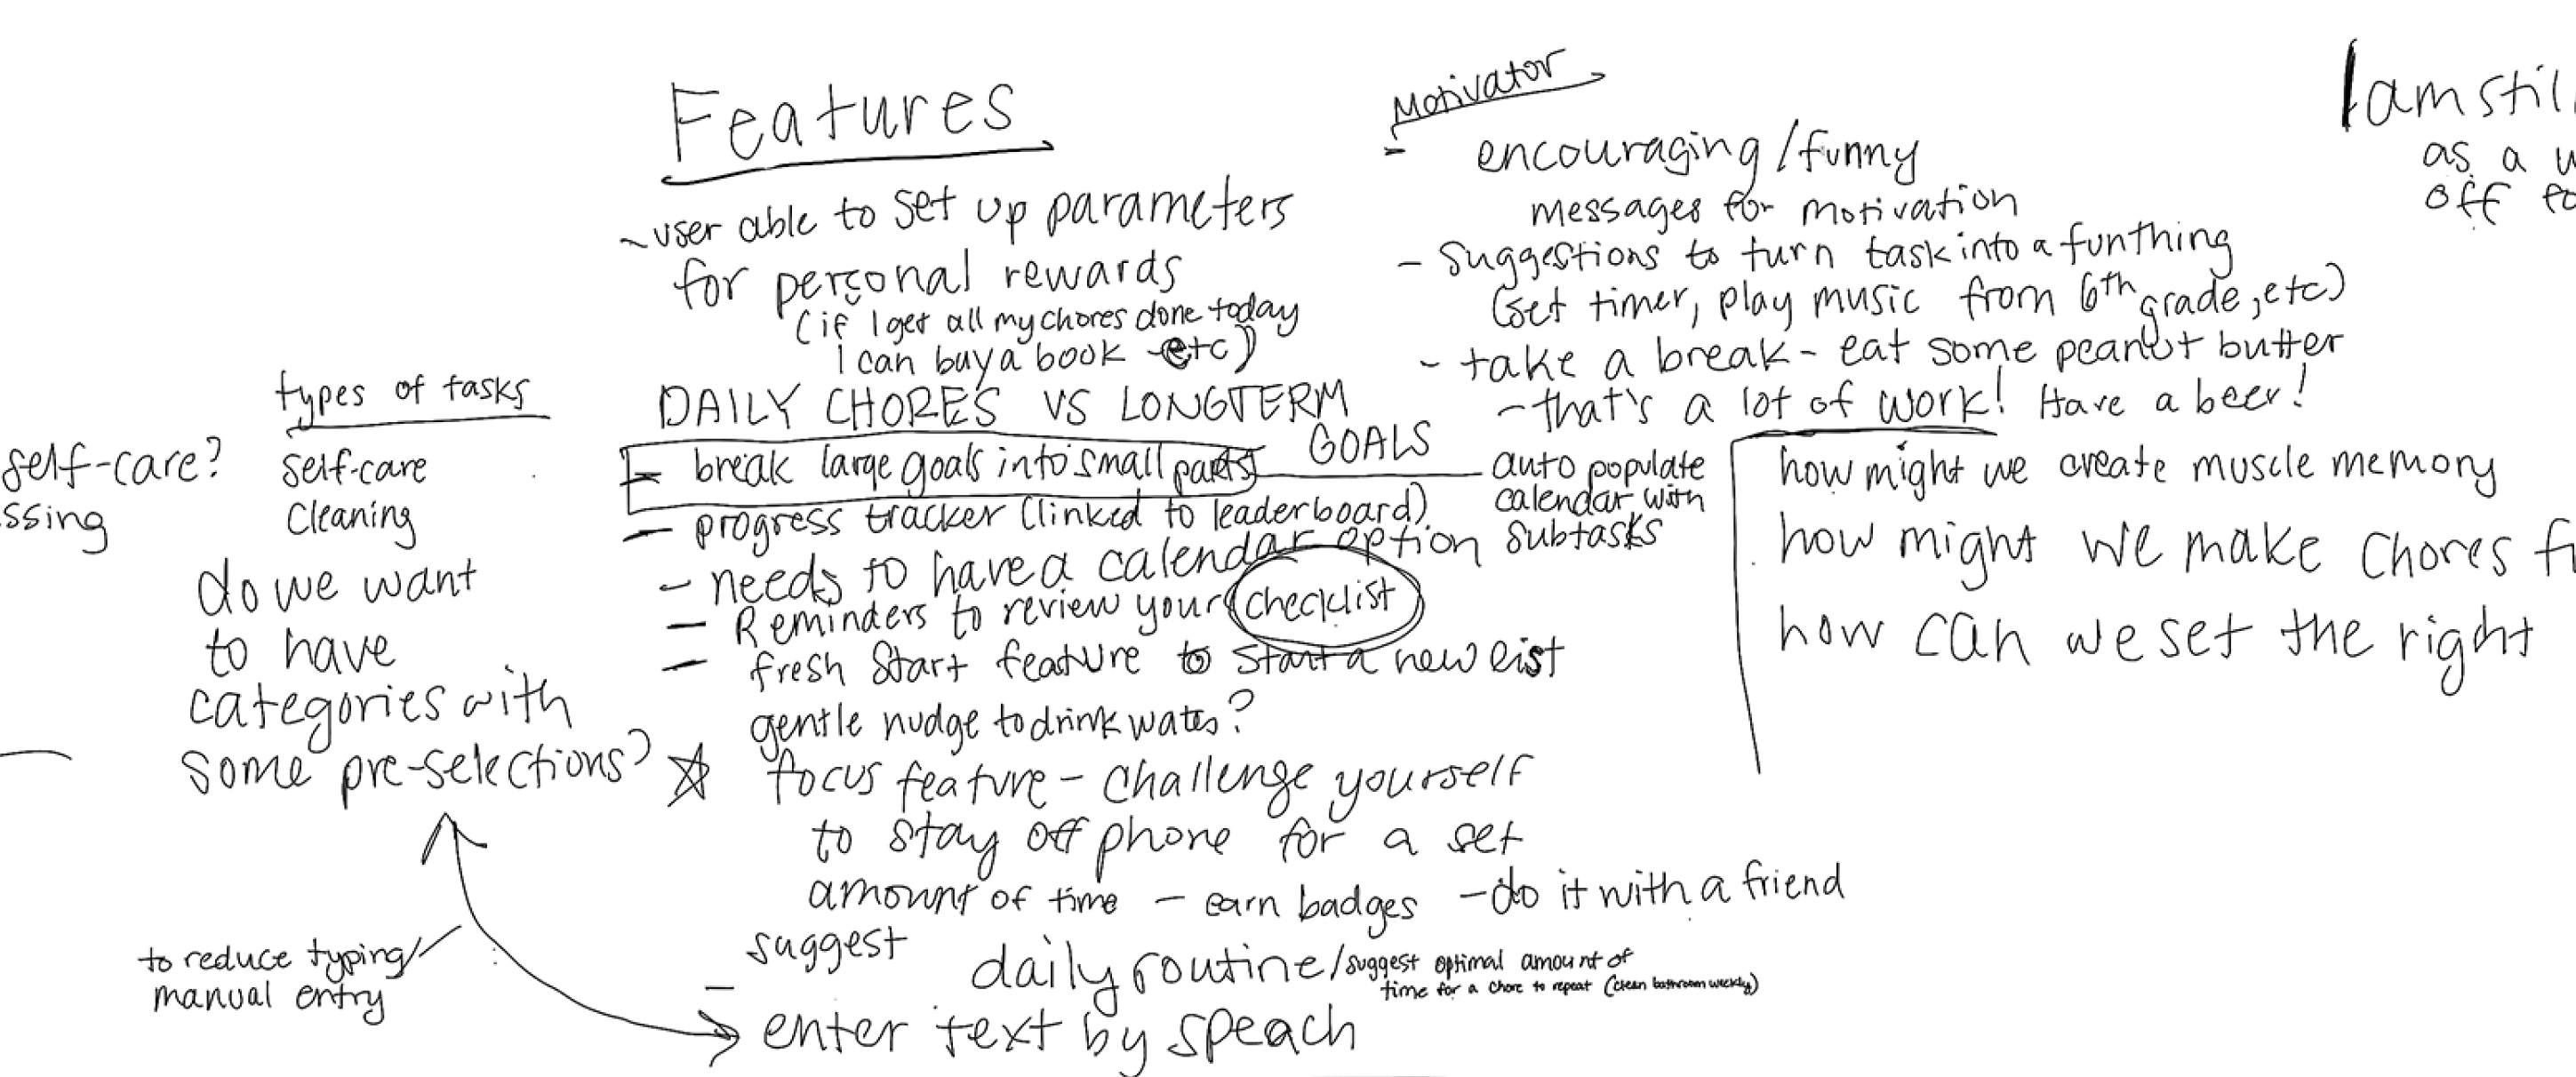 self-care?
ssing
types of tasks
self-care
Cleaning
do we want
to have
categories with
some pre-selections?
to reduce typing/
manual entry
Features
~ user able to set up parameters
for personal rewards
(if I get all my chores done today
I can buy a book etc)
DAILY CHORES VS LONGTERM
GOALS
- break large goals into small parts
auto populate
calendar with
subtasks
- progress tracker (linked to leaderboard)
- needs to have a calendar option
- Reminders to review your checklist
- fresh start feature to start a new list
gentle nudge to drink water?
focus feature - challenge yourself
to stay off phone for a set
amount of time - earn badges - do it with a friend
- suggest daily routine/suggest optimal amount of
time for a chore to repeat (clean bathroom weekly)
enter text by speach
Motivator
- encouraging/funny
messages for motivation
- suggestions to turn task into a fun thing
(set timer, play music from 6th grade, etc)
- take a break - eat some peanut butter
- that's a lot of work! Have a beer!
how might we create muscle memory
how might we make chores f
how can we set the right
I am stil
as a
off